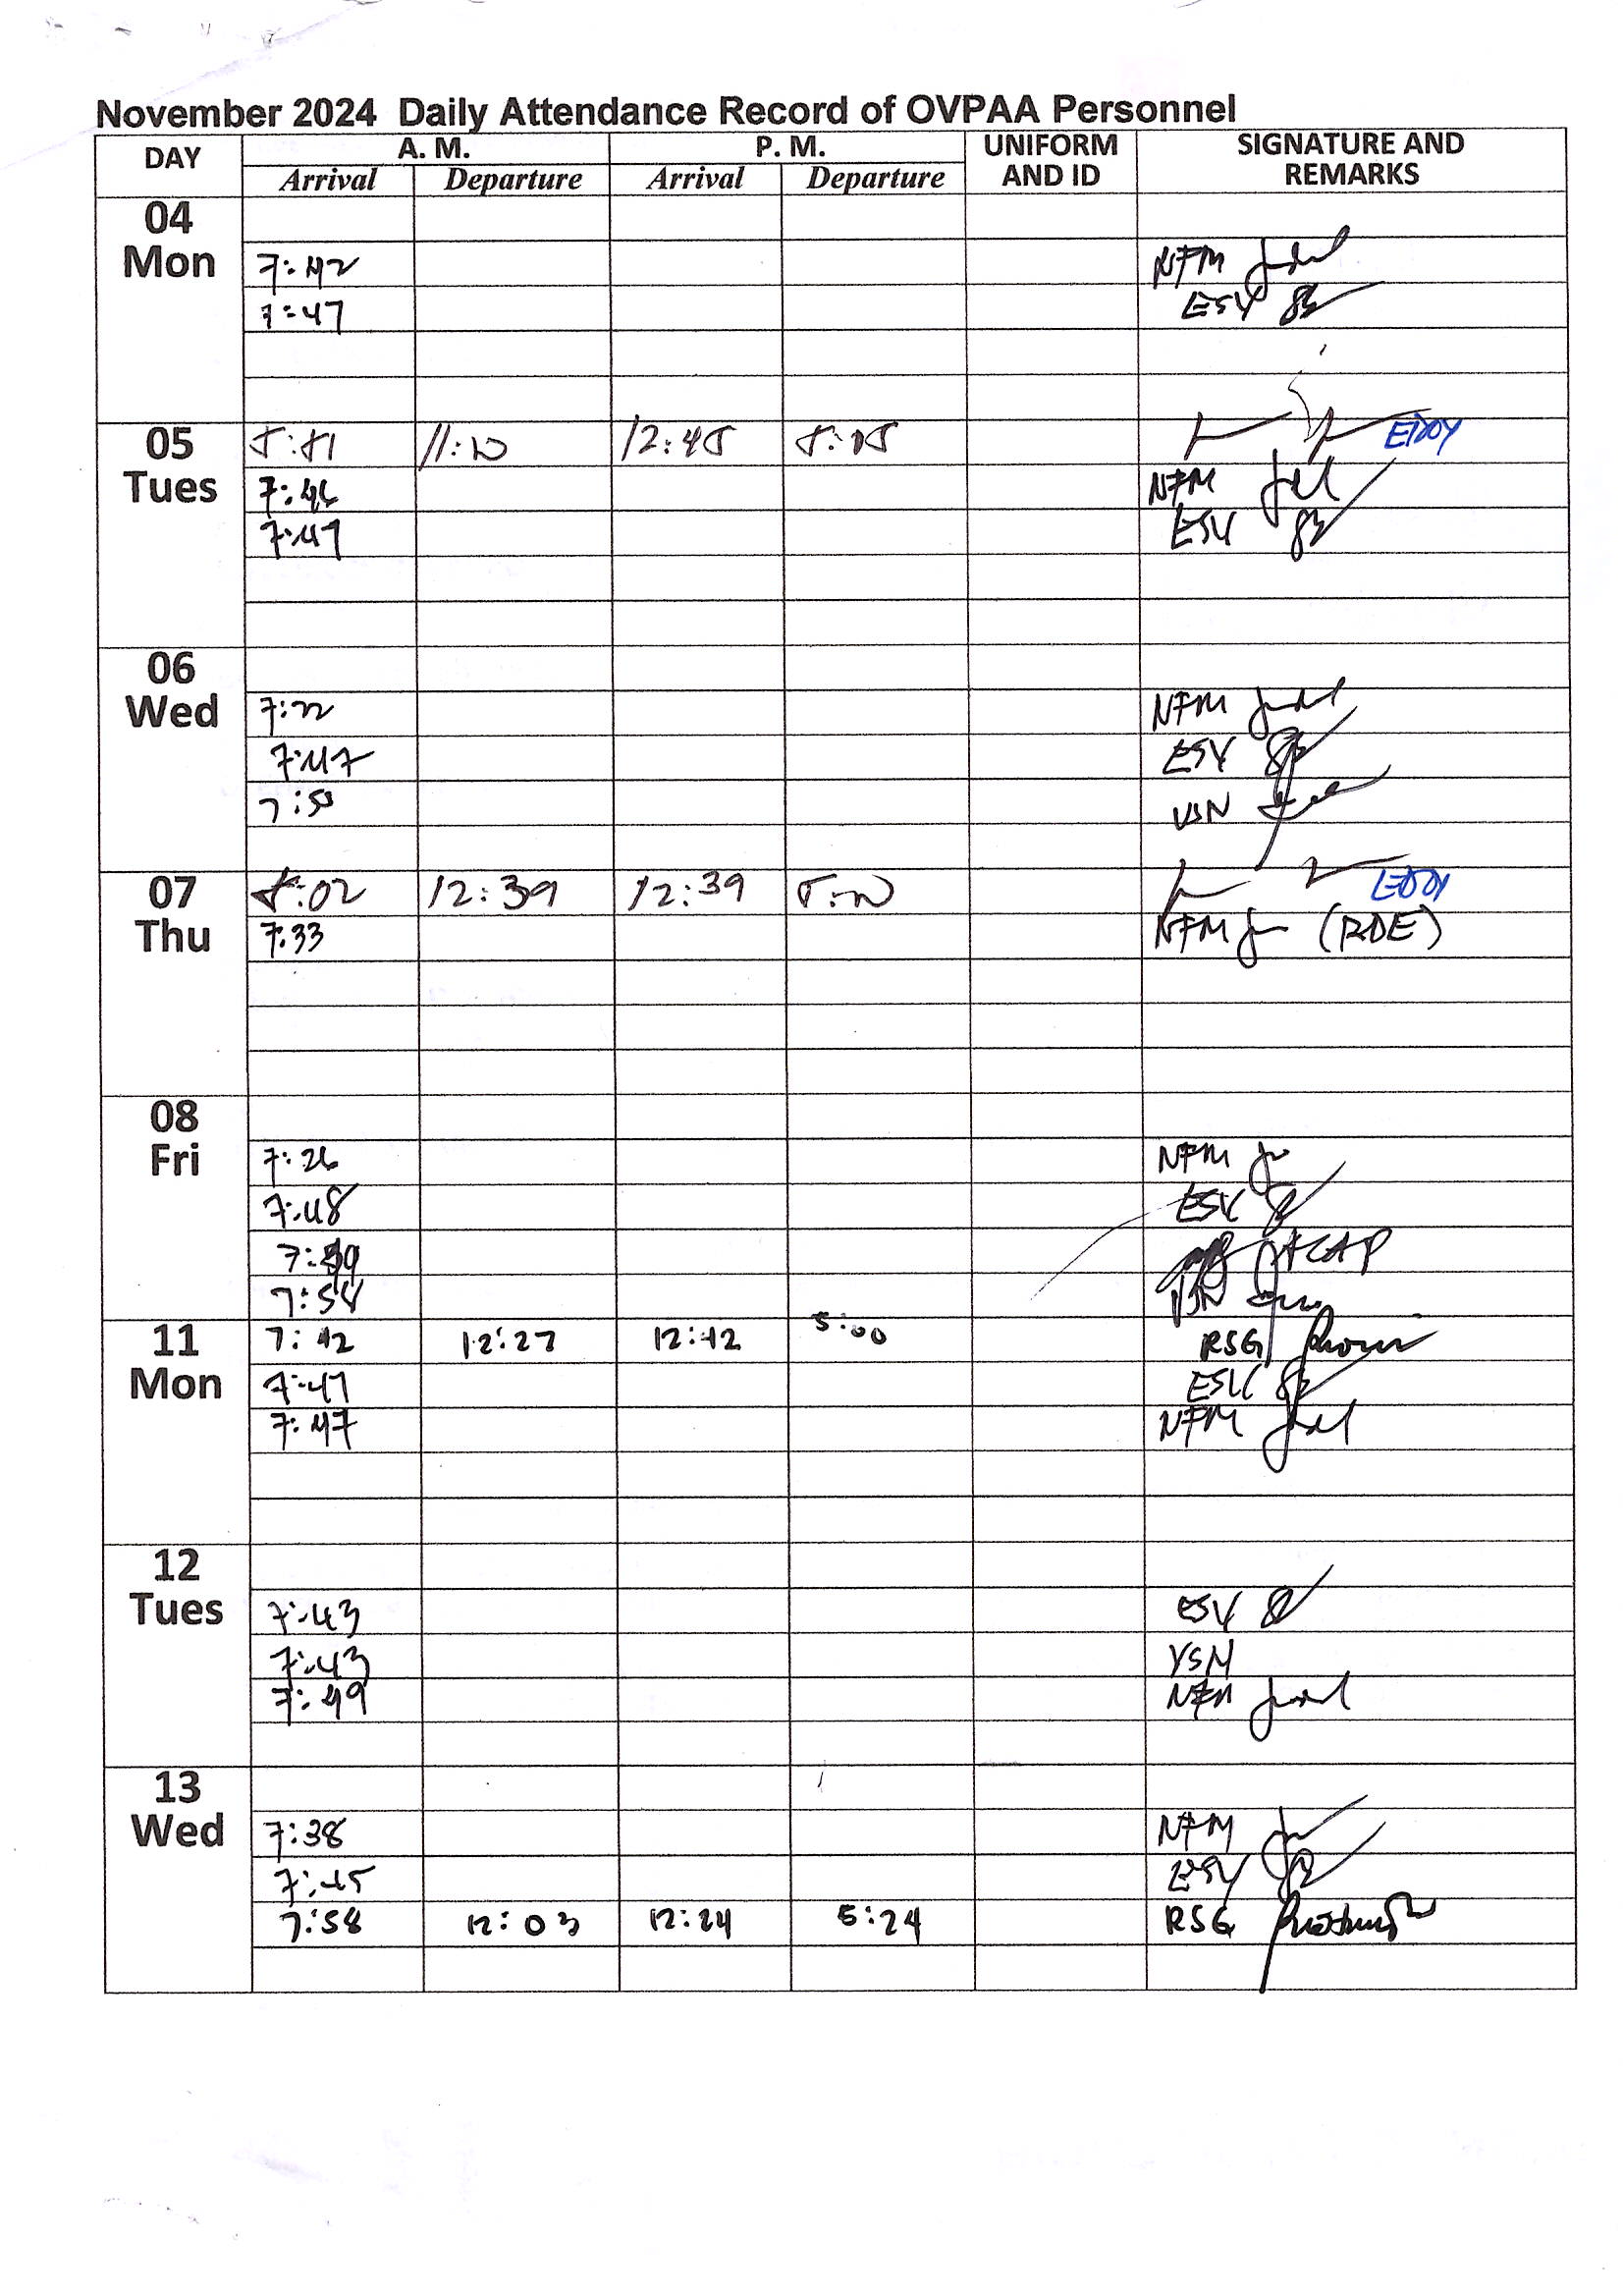 November 2024 Daily Attendance Record of OVPAA Personnel
DAY A. M. P. M. UNIFORM AND ID SIGNATURE AND REMARKS
Arrival Departure Arrival Departure
04 Mon
7:42 NFM
7:47 ESV
05 Tues
12:45 EDDY
7:46 NFM
7:47 ESV
06 Wed
7:22 NFM
7:47 ESV
VSN
07 Thu
12:39 12:39 EDDY
7:33 NFM (RDE)
08 Fri
7:26 NFM
7:48 ESV
ACAP
7:58 VSN
11 Mon
7:42 12:27 12:42 5:00 RSG
7:47 ESV
7:47 NFM
12 Tues
7:43 ESV
7:43 VSN
7:49 NFM
13 Wed
7:38 NFM
7:45 ESV
7:58 12:03 12:24 5:24 RSG